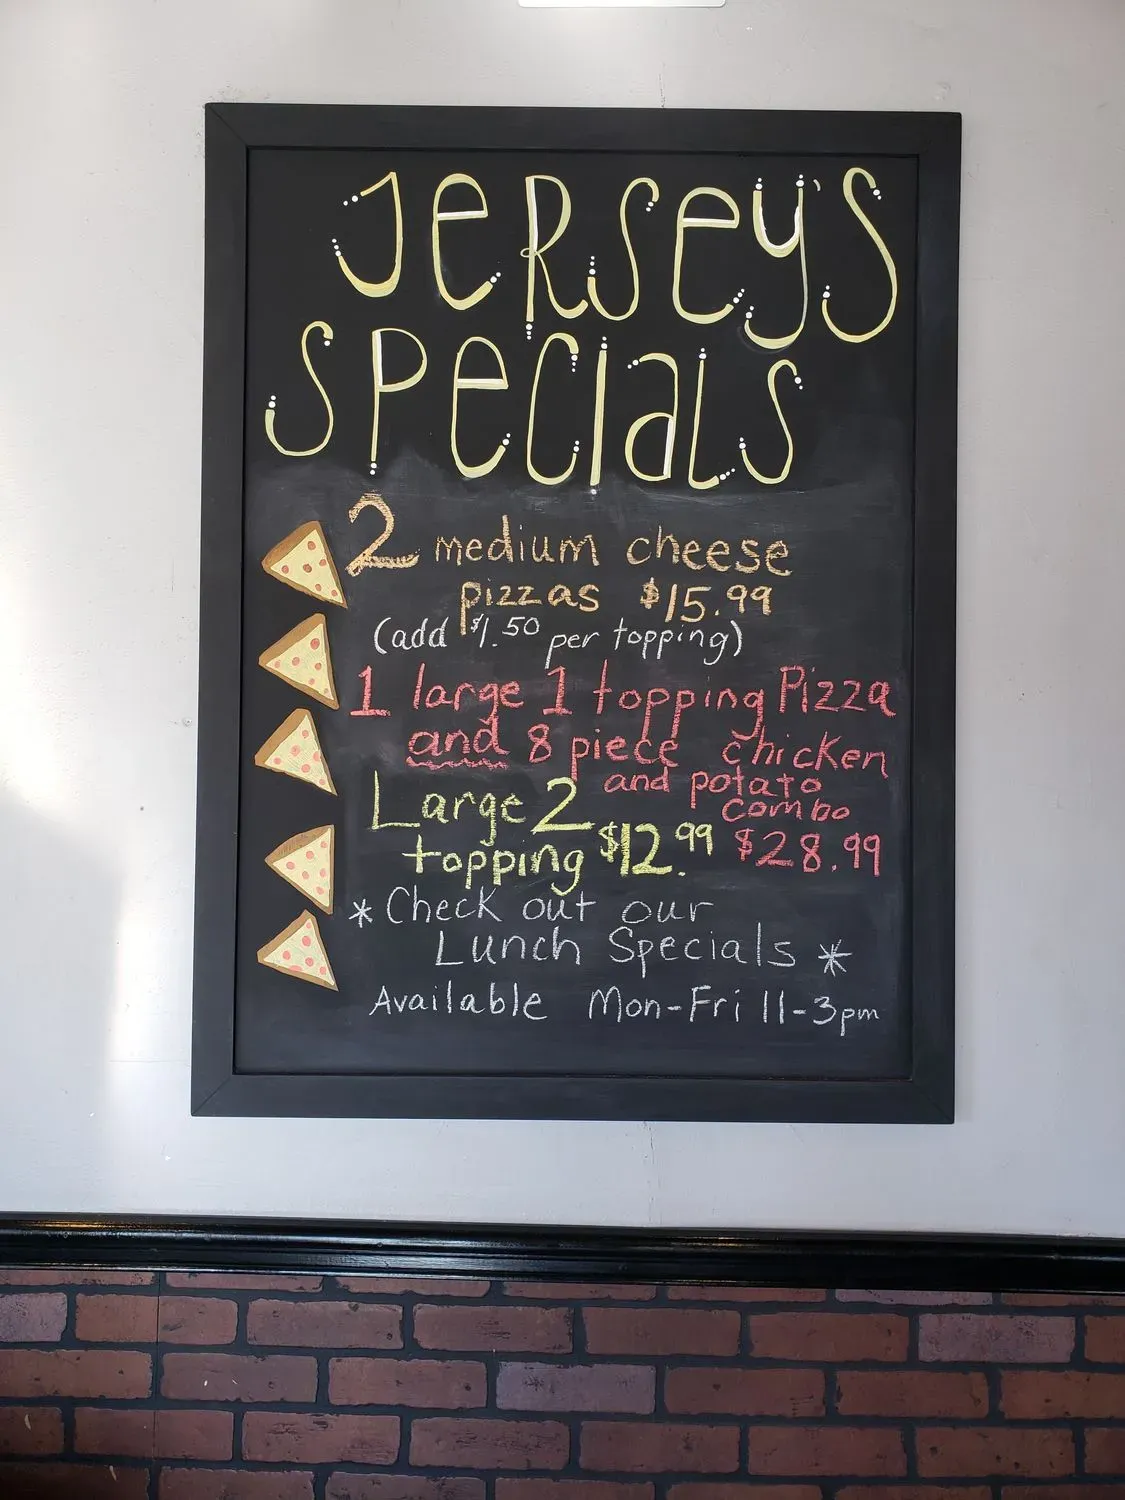 JERSEY'S
SPECIALS
2 medium cheese
pizzas $15.99
(add $1.50 per topping)
1 large 1 topping Pizza
and 8 piece chicken
and potato
combo
$28.99
Large 2
topping $12.99
*Check out our
Lunch Specials*
Available Mon-Fri 11-3pm